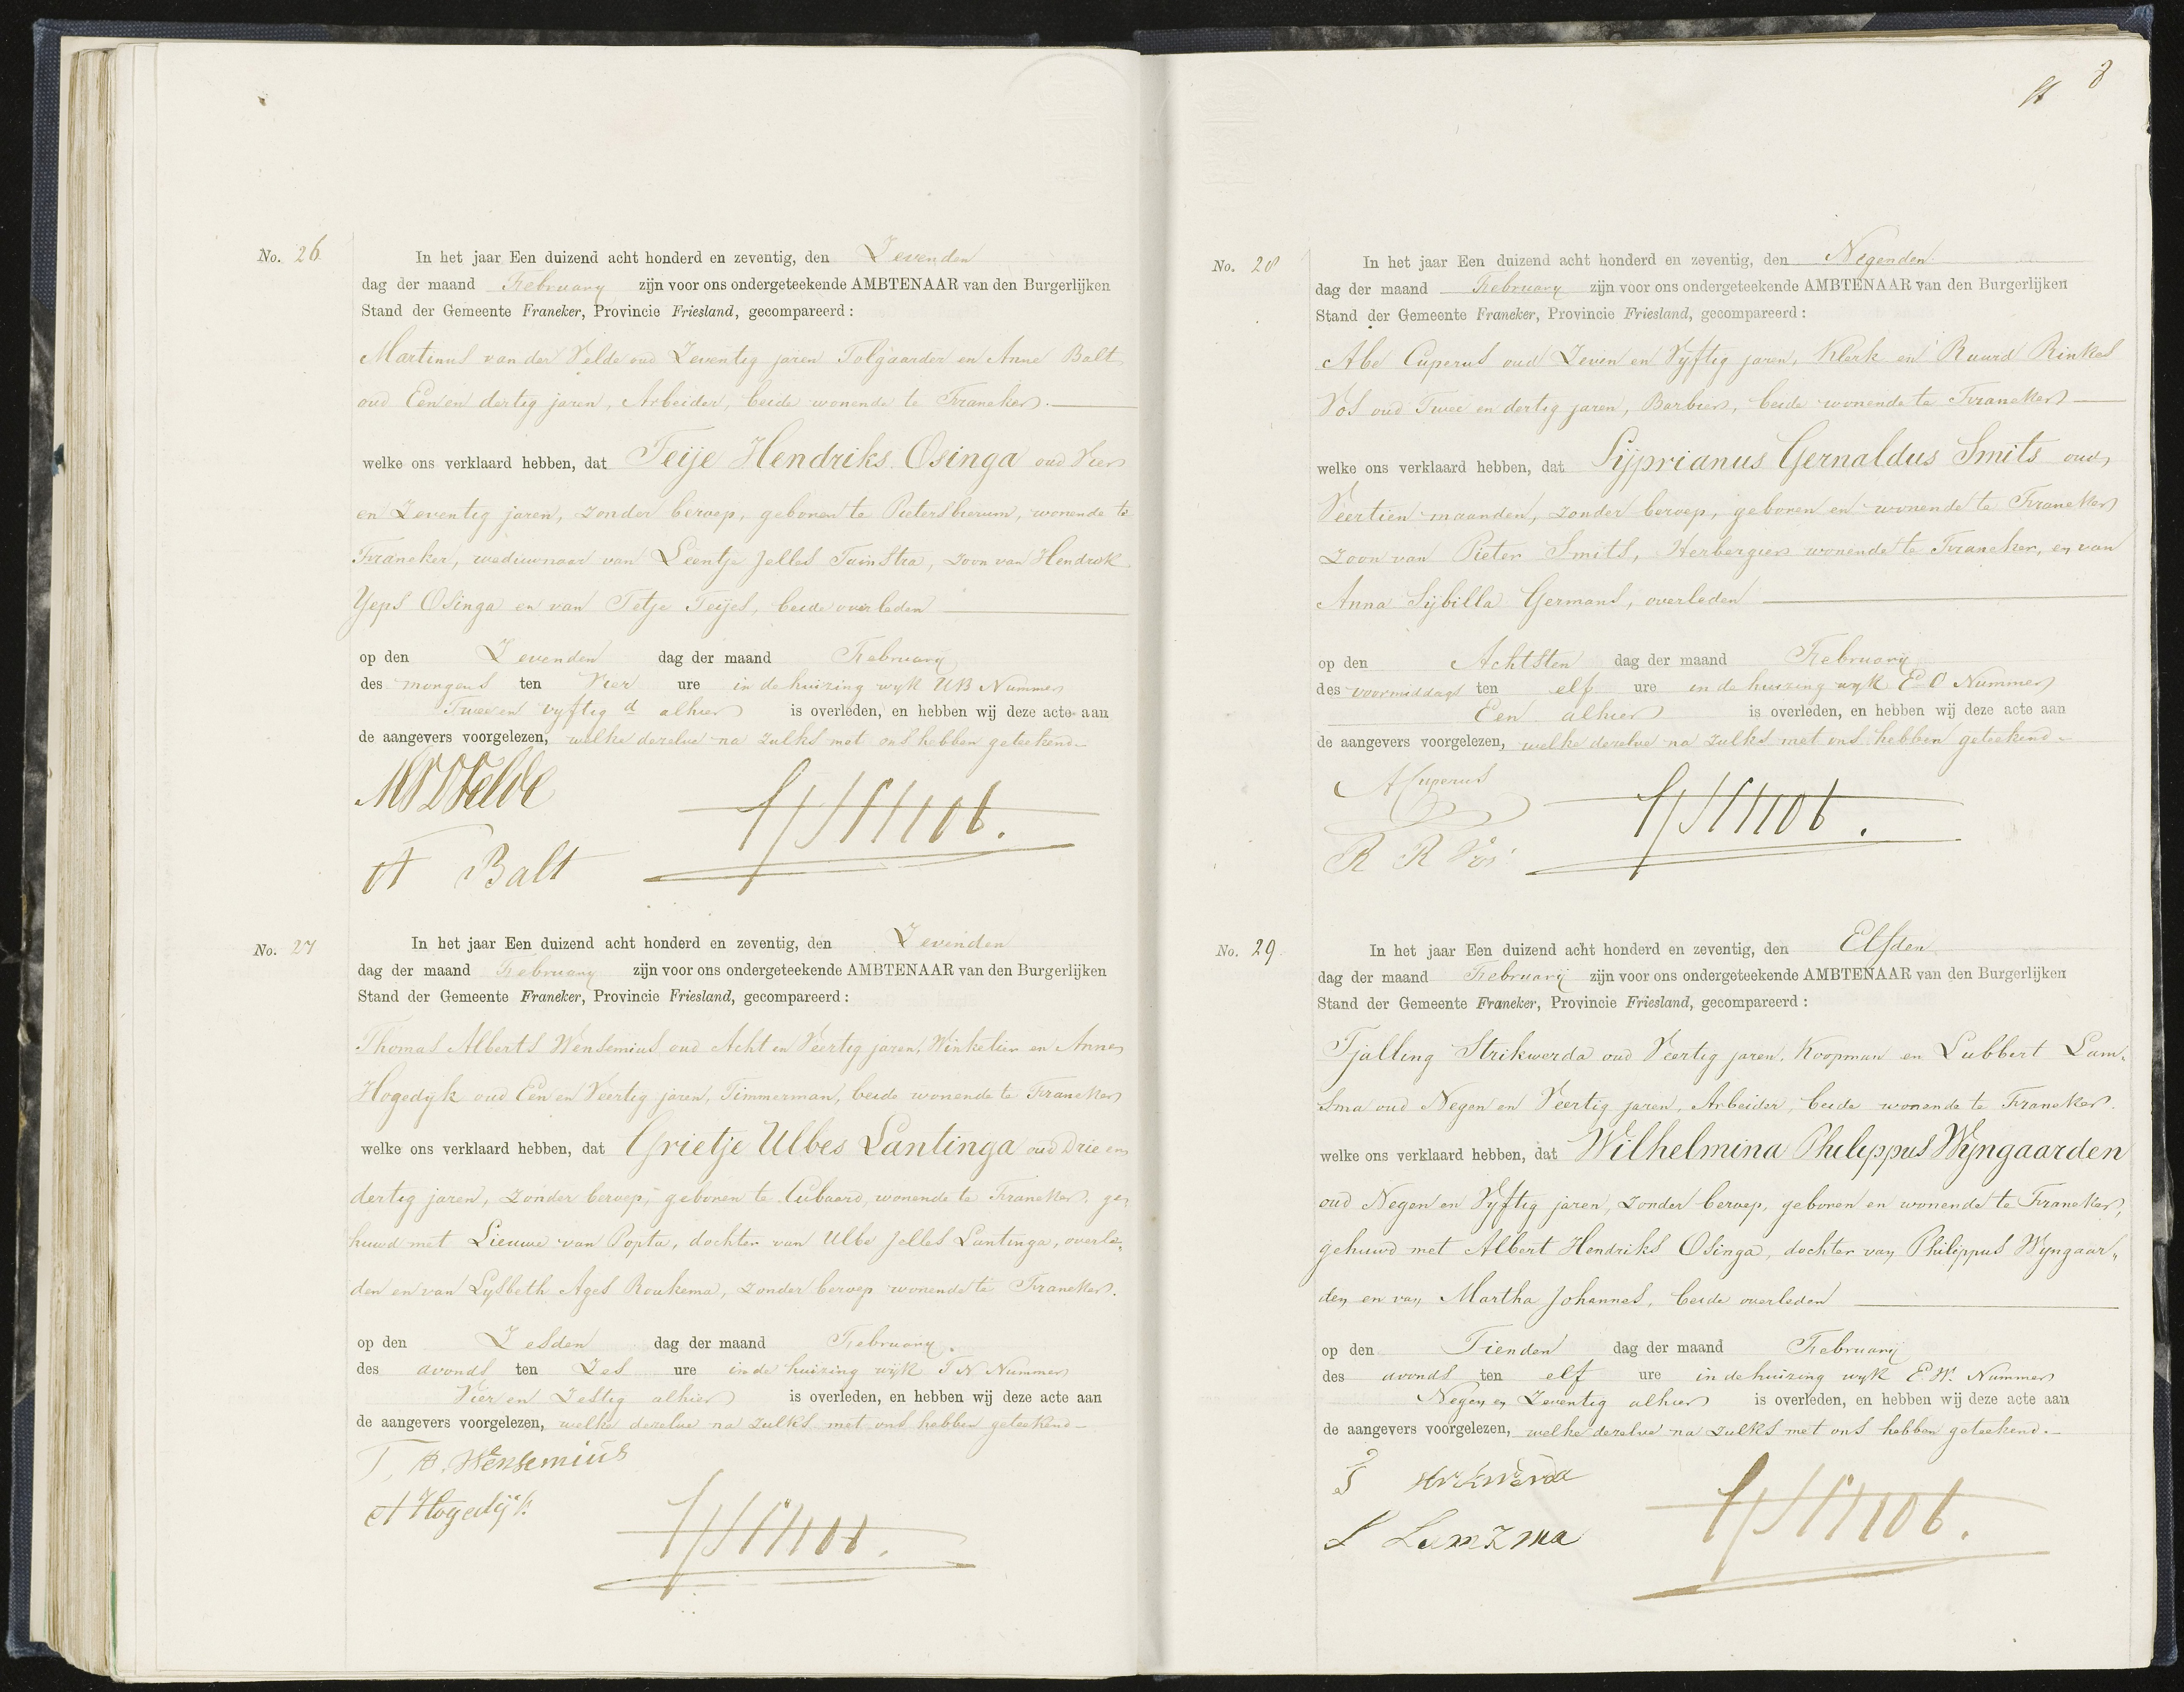 No. 26
In het jaar Een duizend acht honderd en zeventig, den Zevenden
dag der maand February zijn voor ons ondergeteekende AMBTENAAR van den Burgerlijken
Stand der Gemeente Franeker, Provincie Friesland, gecompareerd:
Martinus van der Velde oud Zeventig jaren Tolgaarder en Anne Balt
oud Een en dertig jaren, Arbeider, beide wonende te Franeker.
welke ons verklaard hebben, dat Teije Hendriks Osinga oud Vier
en Zeventig jaren, zonder beroep, geboren te Pietersbierum, wonende te
Franeker, weduwnaar van Leentje Jelles Tuinstra, zoon van Hendrik
Yeps Osinga en van Tetje Teijes, beide overleden
op den Zevenden dag der maand February
des morgens ten Vier ure in de huizing wyk UB Nummer
Twee en vyftig d alhier is overleden, en hebben wij deze acte aan
de aangevers voorgelezen, welke dezelve na zulks met ons hebben geteekend.
MVDVelde
A Balt
No. 27
In het jaar Een duizend acht honderd en zeventig, den Zevenden
dag der maand February zijn voor ons ondergeteekende AMBTENAAR van den Burgerlijken
Stand der Gemeente Franeker, Provincie Friesland, gecompareerd:
Thomas Alberts Wensemius oud Acht en Veertig jaren, Winkelier en Anne
Hogedyk oud Een en Veertig jaren, Timmerman, beide wonende te Franeker
welke ons verklaard hebben, dat Grietje Ulbes Lantinga oud Drie en
dertig jaren, zonder beroep, geboren te Cubaard, wonende te Franeker, ge,
huwd met Lieuwe van Popta, dochter van Ulbe Jelles Lantinga, overle,
den en van Lysbeth Ages Roukema, zonder beroep wonende te Franeker.
op den Zesden dag der maand February.
des avonds ten Zes ure in de huizing wijk TN Nummer
Vier en Zestig alhier is overleden, en hebben wij deze acte aan
de aangevers voorgelezen, welke dezelve na zulks met ons hebben geteekend
T, A. Wensemius
A Hogedijk
8
No. 28
In het jaar Een duizend acht honderd en zeventig, den Negenden
dag der maand February zijn voor ons ondergeteekende AMBTENAAR van den Burgerlijken
Stand der Gemeente Franeker, Provincie Friesland, gecompareerd:
Abe Cuperus oud Zeven en Vyftig jaren, Klerk en Ruurd Rinkes
Vos oud Twee en dertig jaren, Barbier, beide wonende te Franeker
welke ons verklaard hebben, dat Sijprianus Gernaldus Smits oud,
Veertien maanden, zonder beroep, geboren en wonende te Franeker
zoon van Pieter Smits, Herbergier wonende te Franeker, en van
Anna Sijbilla Germans, overleden
op den Achtsten dag der maand February
des voormiddags ten elf ure in de huizing wyk EO Nummer
Een alhier is overleden, en hebben wij deze acte aan
de aangevers voorgelezen, welke dezelve na zulks met ons hebben geteekend.
A Cuperus
R R Vos
No. 29.
In het jaar Een duizend acht honderd en zeventig, den Elfden
dag der maand February zijn voor ons ondergeteekende AMBTENAAR van den Burgerlijken
Stand der Gemeente Franeker, Provincie Friesland, gecompareerd:
Tjalling Strikwerda oud Veertig jaren, Koopman en Lubbert Lam,
sma oud Negen en Veertig jaren, Arbeider, beide wonende te Franeker.
welke ons verklaard hebben, dat Wilhelmina Philippus Wijngaarden
oud Negen en Vyftig jaren, zonder beroep, geboren en wonende te Franeker,
gehuwd met Albert Hendriks Osinga, dochter van Philippus Wyngaar,
den en van Martha Johannes, beide overleden
op den Tienden dag der maand February
des avonds ten elf ure in de huizing wyk E.W. Nummer
Negen en Zeventig alhier is overleden, en hebben wij deze acte aan
de aangevers voorgelezen, welke dezelve na zulks met ons hebben geteekend.
T Strikwerda
L Lamzma